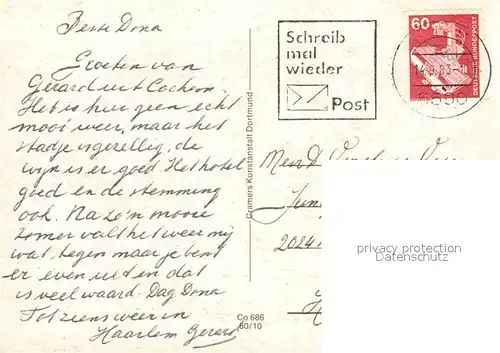 Beste Dona
Groeten van
Gerard uit Cochem.
Het is hier geen echt
mooi weer, maar het
stadje is gezellig, de
wijn is er goed. Het hotel
goed en de stemming
ook. Na zo'n mooie
zomer valt het weer mij
wat tegen maar je bent
er even uit en dat
is veel waard. Dag Dona
Tot ziens weer in
Haarlem Gerard
Co 686
60/10
Cramers Kunstanstalt Dortmund
Schreib
mal
wieder
Post
60
DEUTSCHE BUNDESPOST
2024
privacy protection
Datenschutz